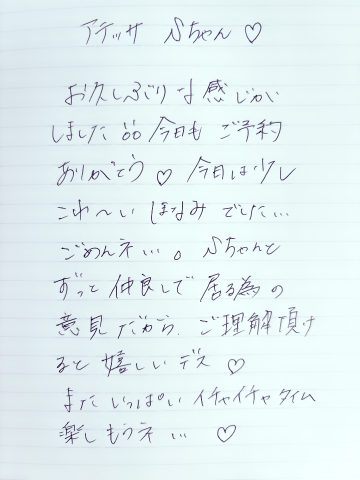 アテッサ Sちゃん♡
お久しぶりな感じがい
しました 今日も ご予約
ありがとう♡ 今日は少し
こわ〜い ほなみ でした…
ごめんネ…。Sちゃんと
ずっと 仲良しで 居る為の
意見 だから、ご理解頂け
ると 嬉しい デス ♡
また いっぱい イチャイチャ タイム
楽しもうネ … ♡